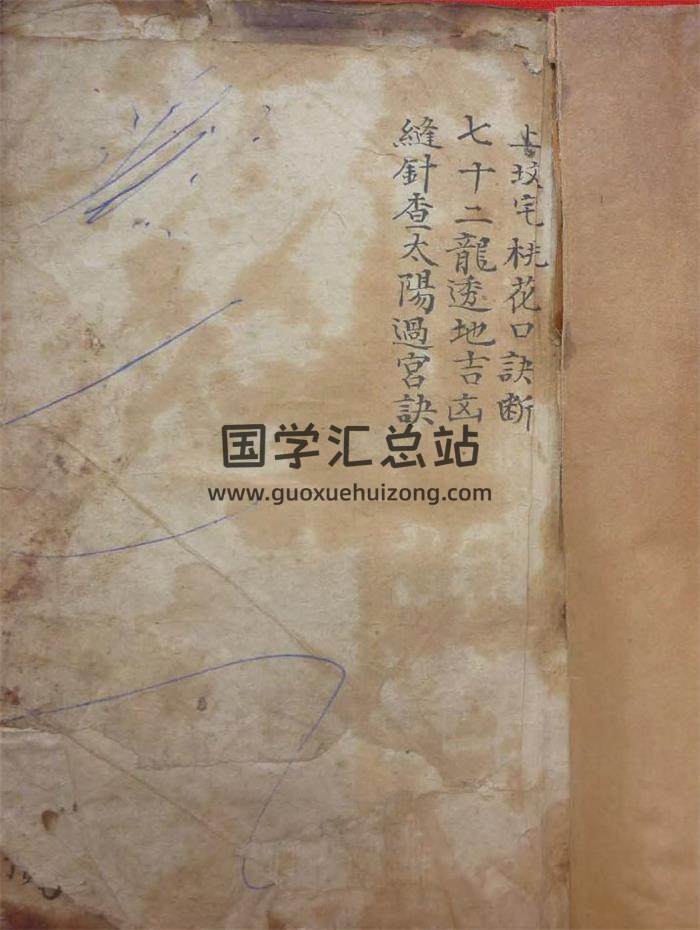 上坟宅桃花口訣断
七十二龍透地吉凶
縫針查太陽過宮訣
国学汇总站
www.guoxuehuizong.com